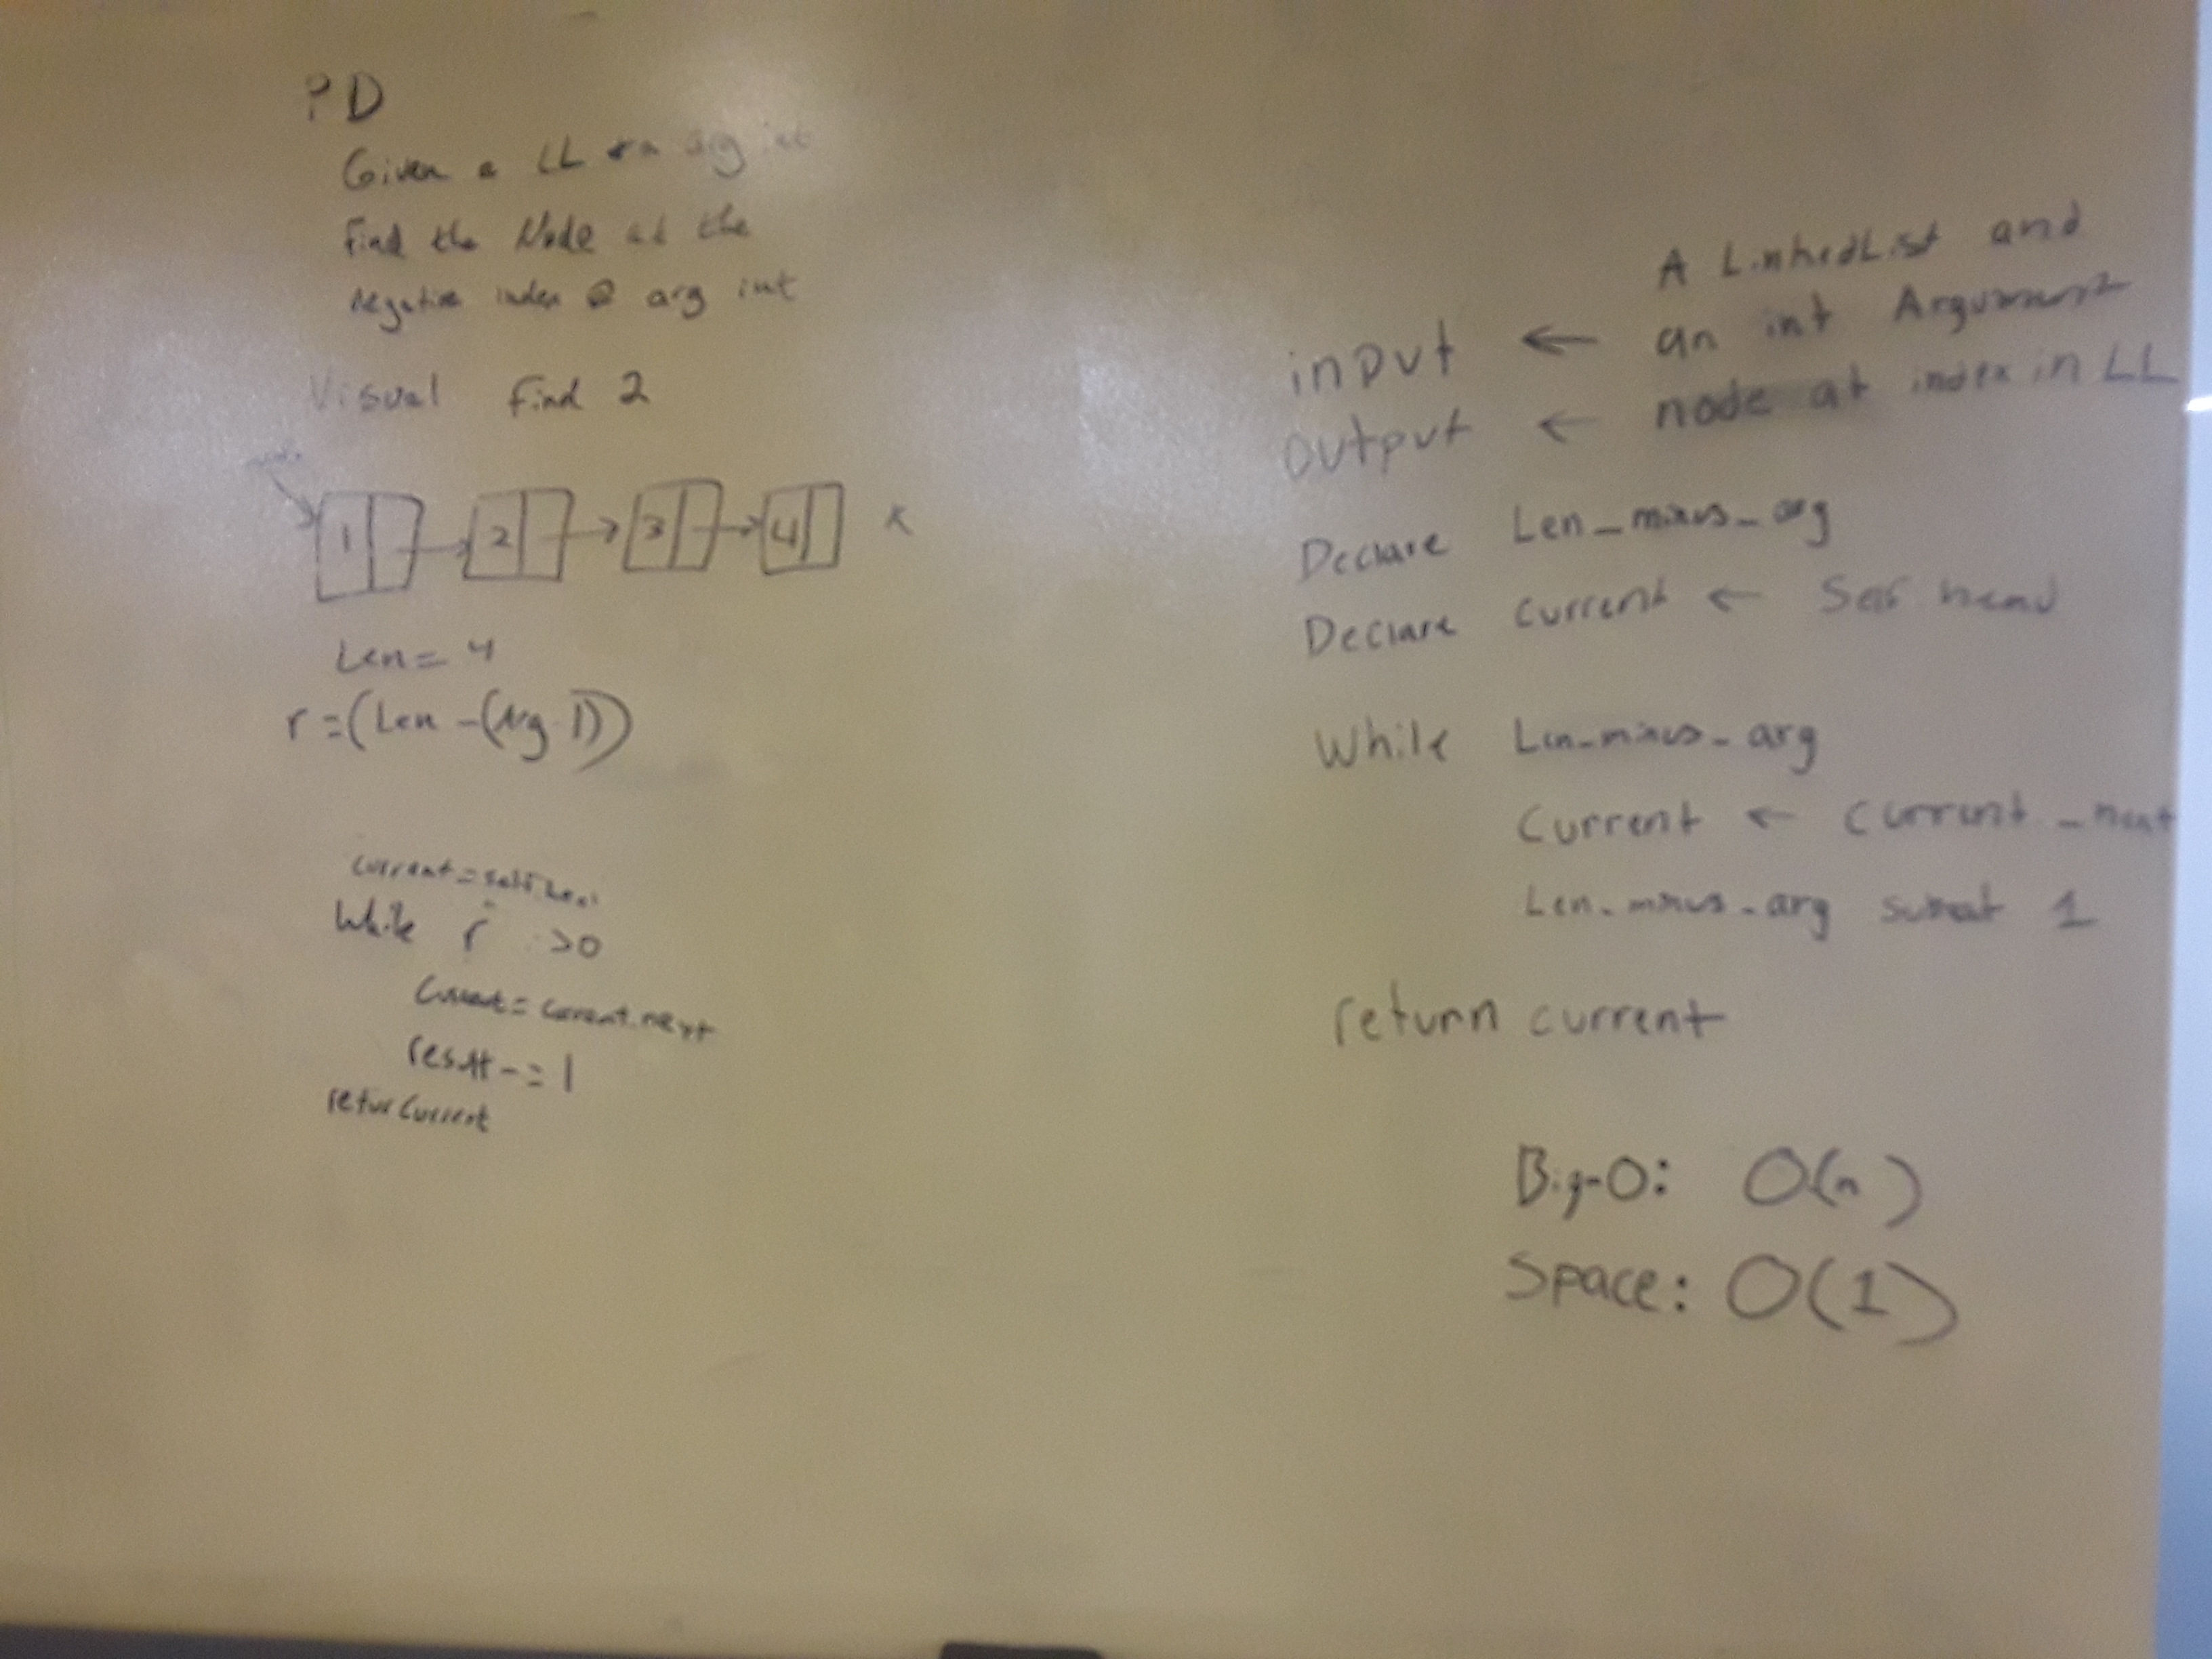 PD
Given a LL + a arg int
Find the Node at the
negative index @ arg int
Visual Find 2
1 2 3 4 x
Len = 4
r = (Len - (Arg - 1))
current = self.head
While r > 0
Current = current.next
result -= 1
retur Current
A LinkedList and
input ← an int Argument
output ← node at index in LL
Declare Len_minus_arg
Declare current ← Self head
While Len_minus_arg
Current ← current_next
Len_minus_arg 1
return current
Big-O: O(n)
Space: O(1)